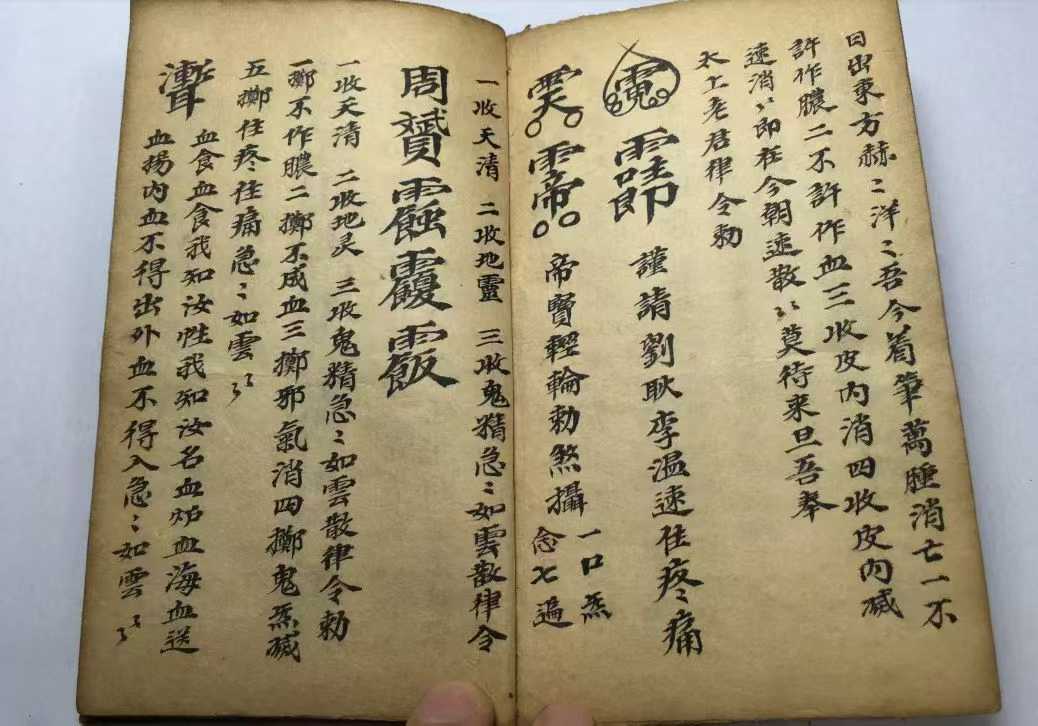 日出東方赫〻洋〻吾今着筆萬腫消亡一不
許作膿二不許作血三收皮内消四收皮内減
速消〻即在今朝速散〻莫待来旦吾奉
太上老君律令勅
謹請劉耿李温速住疼痛
帝賢輕輪勅煞攝
一口炁
念七遍
一收天清 二收地靈 三收鬼精急〻如雲散律令
周
一收天清 二收地灵 三收鬼精急〻如雲散律令勅
一擲不作膿二擲不成血三擲邪氣消四擲鬼炁減
五擲住疼住痛急〻如雲〻
血食血食我知汝性我知汝名血炉血海血送
血揚内血不得出外血不得入急〻如雲〻